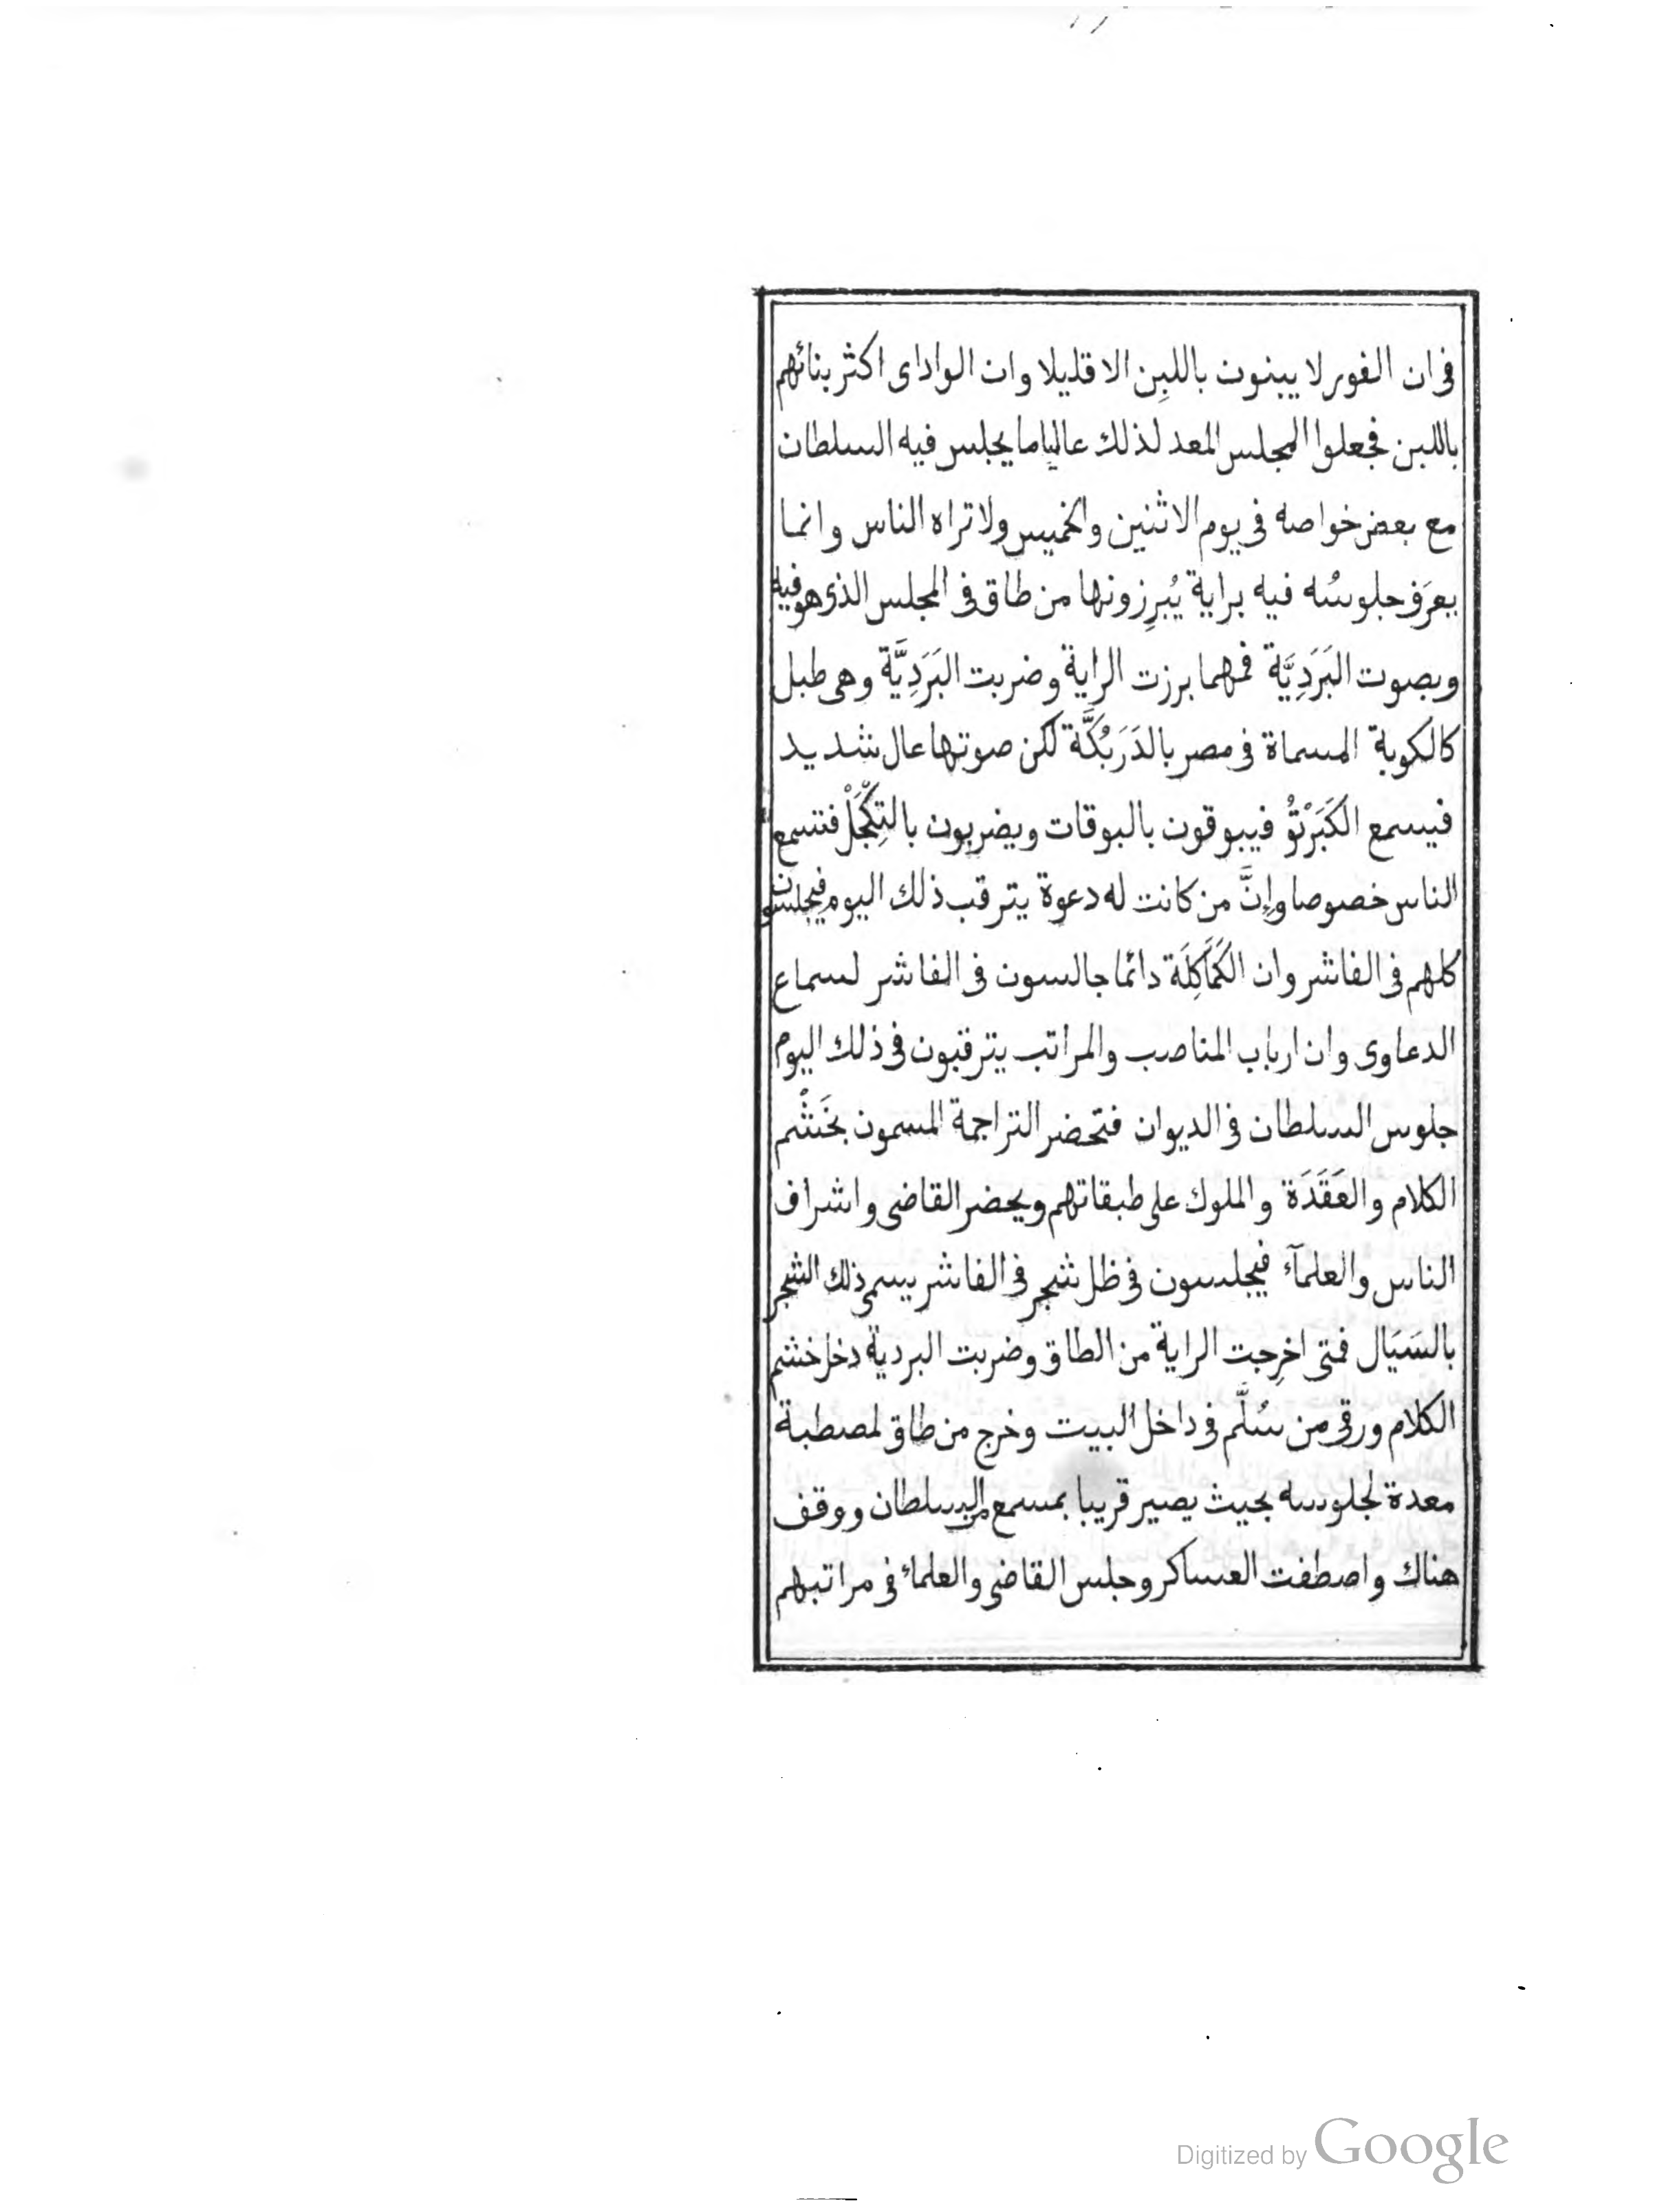 فى ان الفور لا يبنون باللبِن الا قليلا وان الواداى اكثر بنائهم
باللبن فجعلوا المجلس المعد لذلك عاليا ما يجلس فيه السلطان
مع بعض خواصه فى يوم الاثنين والخميس ولا تراه الناس وانما
يعرَف جلوسُه فيه براية يُبرِزونها من طاق فى المجلس الذى هو فيه
وبصوت البَرَدِيَّة فمهما برزت الراية وضربت البَرَدِيَّة وهى طبل
كالكوبة المسماة فى مصر بالدَرَبُكَّة لكن صوتها عال شديد
فيسمع الكَبَرْتُو فيبوقون بالبوقات ويضربون بالتِكْجَلْ فتسمع
الناس خصوصا وإنَّ من كانت له دعوة يترقب ذلك اليوم فيجلسون
كلهم فى الفاشر وان الكَمَاكِلَة دائما جالسون فى الفاشر لسماع
الدعاوى وان ارباب المناصب والمراتب يترقبون فى ذلك اليوم
جلوس السلطان فى الديوان فتحضر التراجمة المسمون بخَشْم
الكلام والعَقَدَة والملوك على طبقاتهم ويحضر القاضى واشراف
الناس والعلمآء فيجلسون فى ظل شجر فى الفاشر يسمى ذلك الشجر
بالسَيَال فمتى اخرِجت الراية من الطاق وضربت البردية دخل خشم
الكلام ورقى من سُلَّم فى داخل البيت وخرج من طاق لمصطبة
معدة لجلوسه بحيث يصير قريبا بمسمع من السلطان ووقف
هناك واصطفت العساكر وجلس القاضى والعلماء فى مراتبهم
Digitized by Google